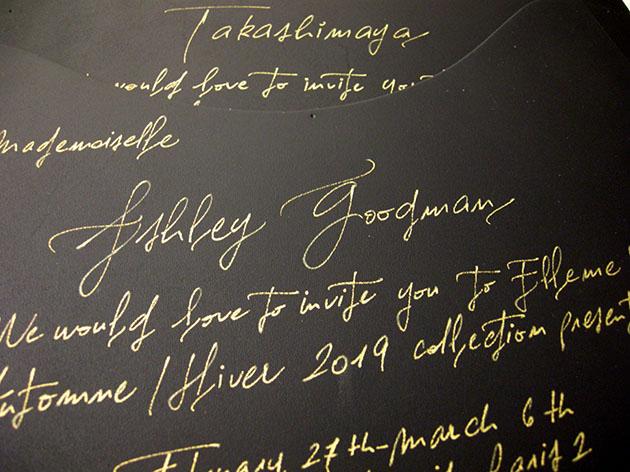 Takashimaya
would love to invite you
Mademoiselle
Ashley Goodman
We would love to invite you to Elleme
Automne / Hiver 2019 collection present
February 27th-March 6th
Paris 2